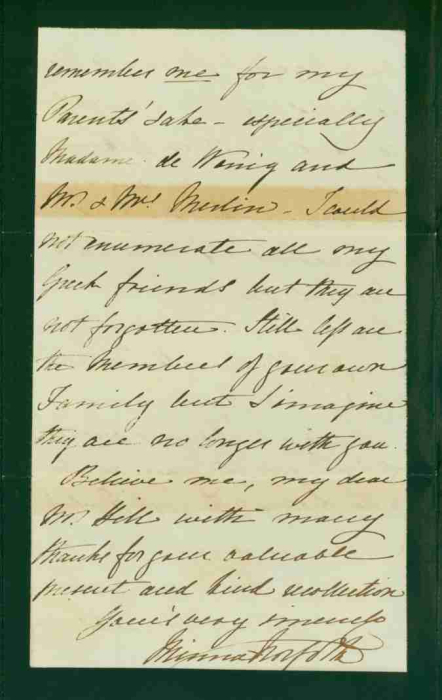 remember me for my
Parents' sake - especially
Madame de Wenig and
Mr. & Mrs. Merlin - I could
not enumerate all my
Greek friends but they are
not forgotten. Still less are
the Members of your own
Family but I imagine
they are no longer with you.
Believe me, my dear
Mr. Hill with many
thanks for your valuable
present and kind recollection
Your's very sincerely
Minna Norfolk